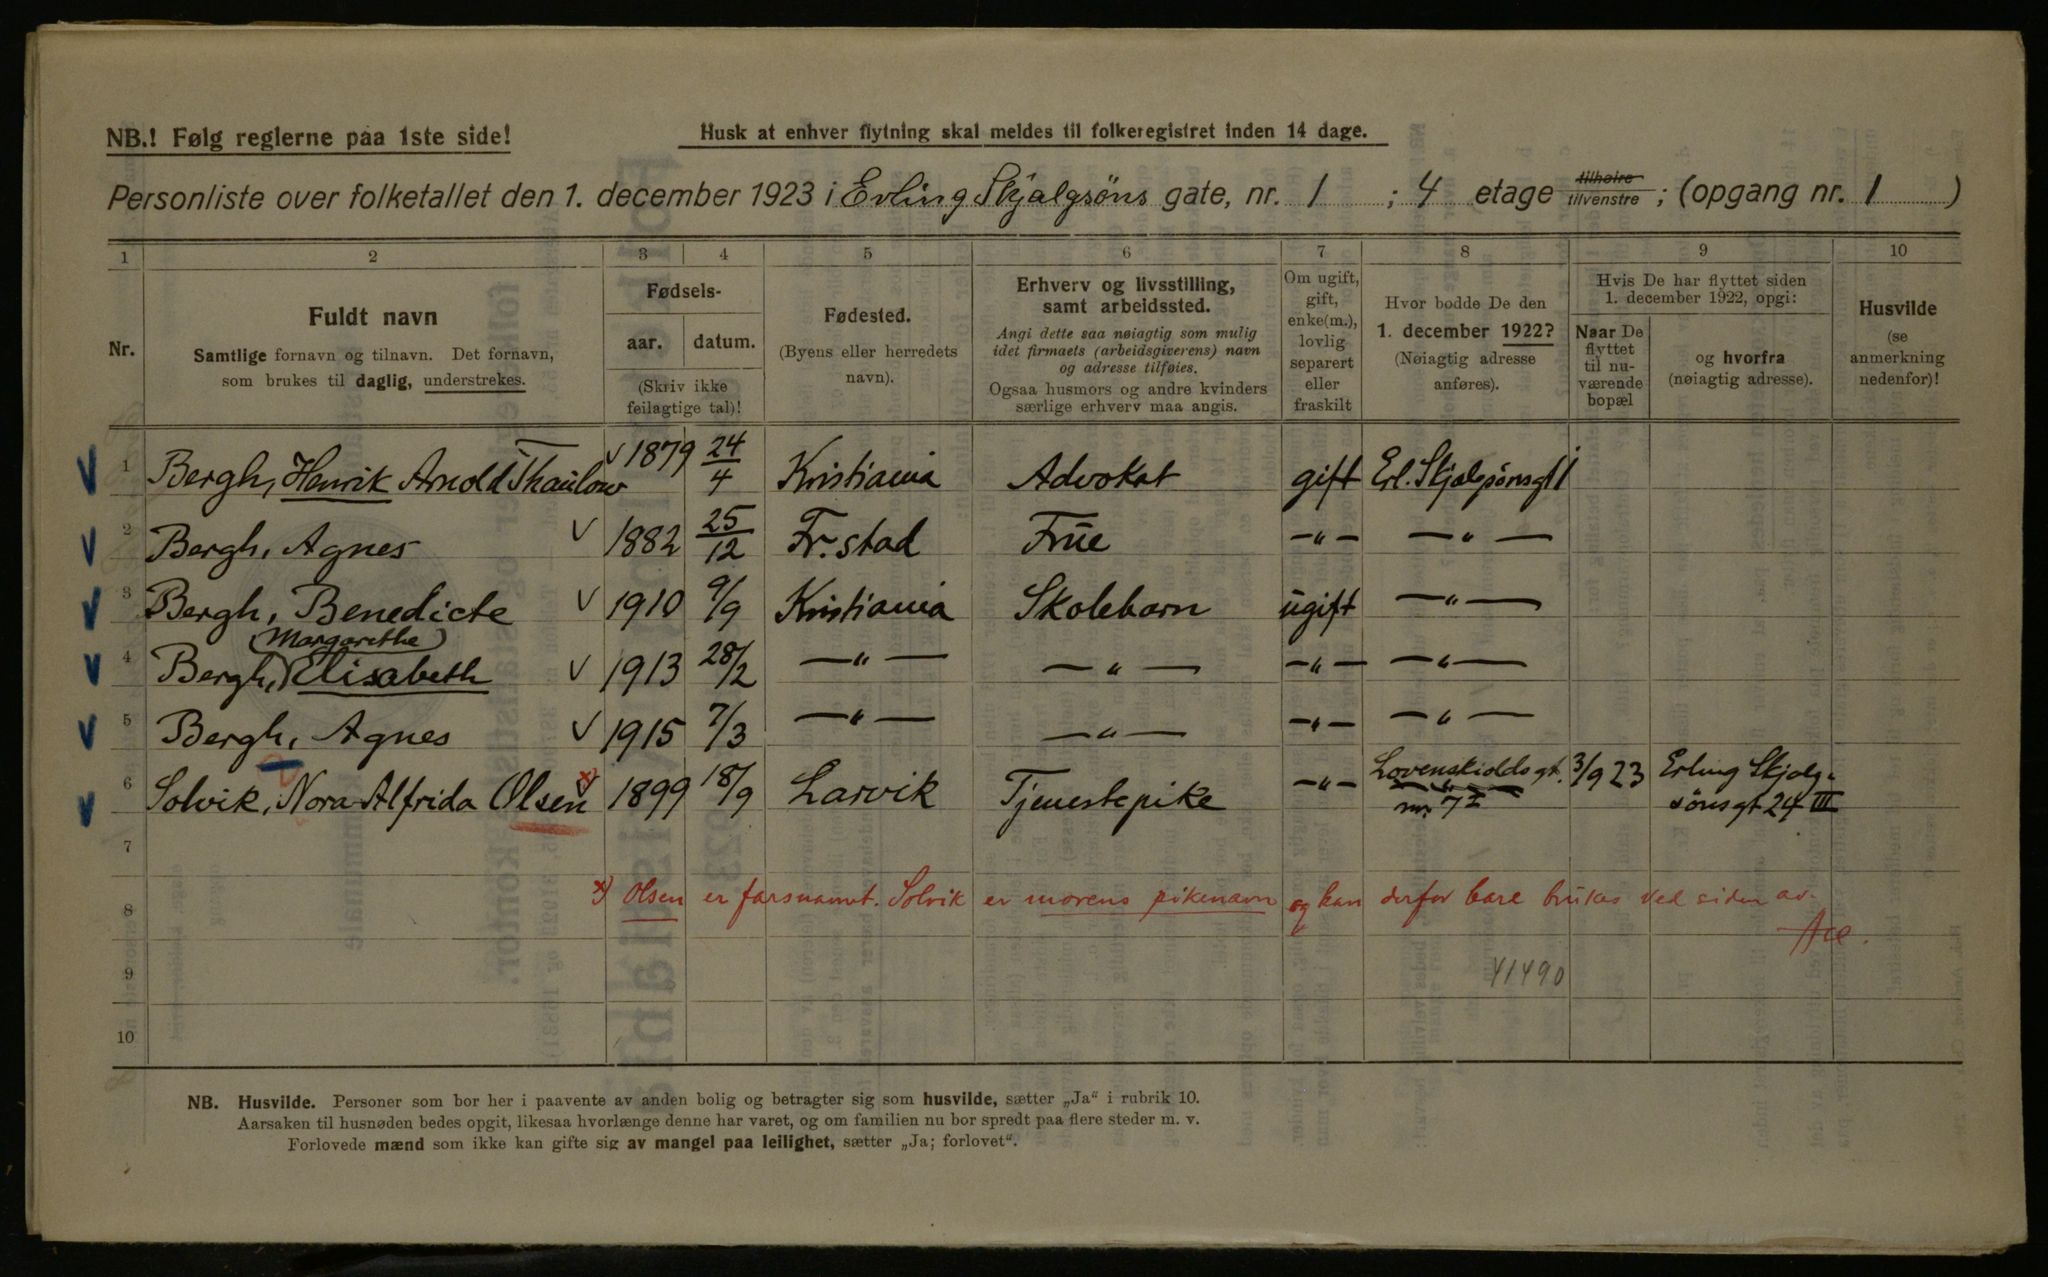 NB.! Følg reglerne paa 1ste side!
Husk at enhver flytning skal meldes til folkeregistret inden 14 dage.
Personliste over folketallet den 1. december 1923 i Erling Skjalgsöns gate, nr. 1 ; 4 etage tilhøire tilvenstre ; (opgang nr. 1 )
1 2 3 4 5 6 7 8 9 10
Nr.
Fuldt navn
Samtlige fornavn og tilnavn. Det fornavn,
som brukes til daglig, understrekes.
Fødsels-
aar. datum.
(Skriv ikke
feilagtige tal)!
Fødested.
(Byens eller herredets
navn).
Erhverv og livsstilling,
samt arbeidssted.
Angi dette saa nøiagtig som mulig
idet firmaets (arbeidsgiverens) navn
og adresse tilføies.
Ogsaa husmors og andre kvinders
særlige erhverv maa angis.
Om ugift,
gift,
enke(m.),
lovlig
separert
eller
fraskilt
Hvor bodde De den
1. december 1922?
(Nøiagtig adresse
anføres).
Hvis De har flyttet siden
1. december 1922, opgi:
Naar De
flyttet
til nu-
værende
bopæl
og hvorfra
(nøiagtig adresse).
Husvilde
(se
anmerkning
nedenfor)!
1 Bergh, Henrik Arnold Thaulow 1879 24/4 Kristiania Advokat gift Erl. Skjalgsönsgt 1
2 Bergh, Agnes 1882 25/12 Fr.stad Frue —"— —"—
3 Bergh, Benedicte 1910 9/9 Kristiania Skolebarn ugift —"—
(Margarethe)
4 Bergh, Elisabeth 1913 28/2 —"— —"— —"— —"—
5 Bergh, Agnes 1915 7/3 —"— —"— —"— —"—
6 Solvik, Nora Alfrida Olsen x) 1899 18/9 Larvik Tjenestepike —"— Lovenskioldsgt. 3/9 23 Erling Skjalg-
nr. 7 I sönsgt 24 III
7
8 x) Olsen er farsnavnet. Solvik er morens pikenavn og kan derfor bare brukes ved siden av.
9 41490
10
NB. Husvilde. Personer som bor her i paavente av anden bolig og betragter sig som husvilde, sætter „Ja“ i rubrik 10.
Aarsaken til husnøden bedes opgit, likesaa hvorlænge denne har varet, og om familien nu bor spredt paa flere steder m. v.
Forlovede mænd som ikke kan gifte sig av mangel paa leilighet, sætter „Ja; forlovet“.